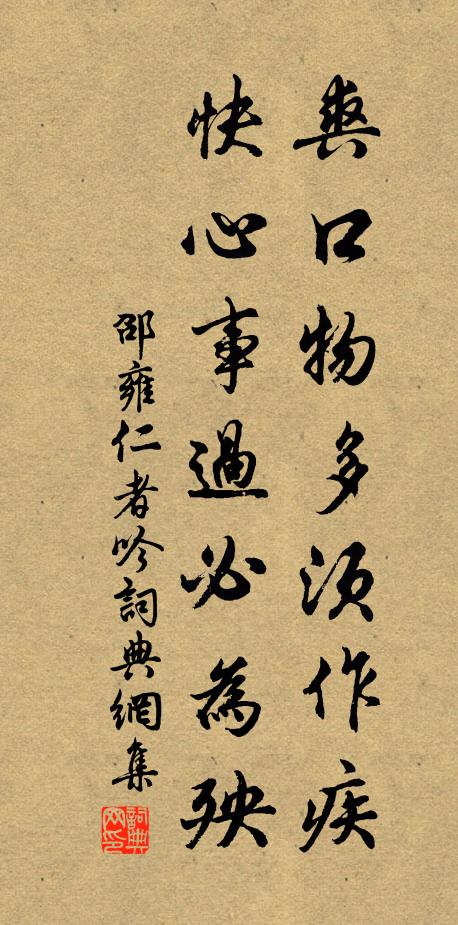 爽口物多須作疾
快心事過必為殃
邵雍仁者吟詞典網集
詞典網印